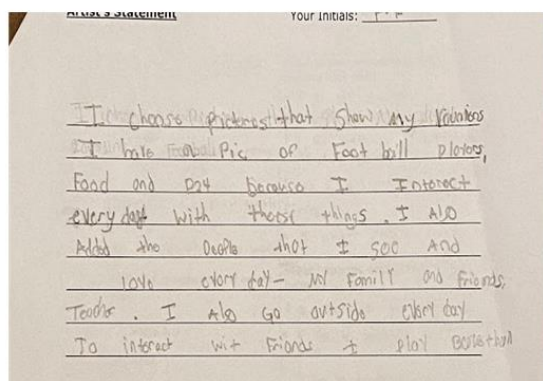 Artist's Statement Your Initials:
I choose pictures that Show My
I have a Pic of Foot ball players,
Food and P24 because I Interact
every day with these things. I Also
Added the People that I see And
love every day- My Family and friends,
Teachr. I Also Go outside every day
To interact wit Friends + play